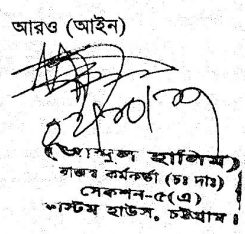 আরও (আইন)
(আব্দুল হালিম)
রাজস্ব কর্মকর্তা (চঃ দাঃ)
সেকশন-৫(এ)
কাস্টম হাউস, চট্টগ্রাম।